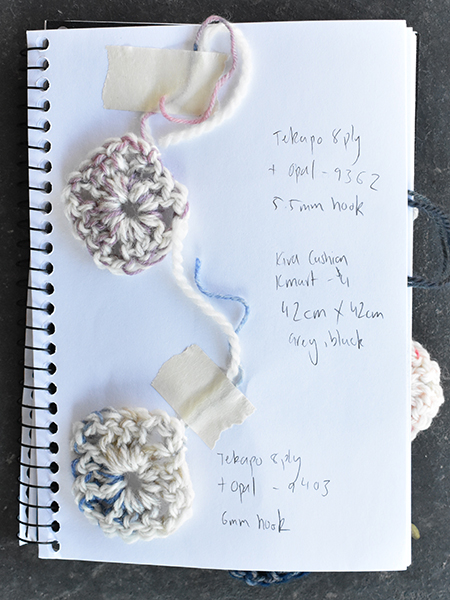 Tekapo 8ply
+ Opal - 9362
5.5mm hook
Kiva Cushion
Kmart - $4
42cm x 42cm
Grey, black
Tekapo 8ply
+ Opal - 9403
6mm hook